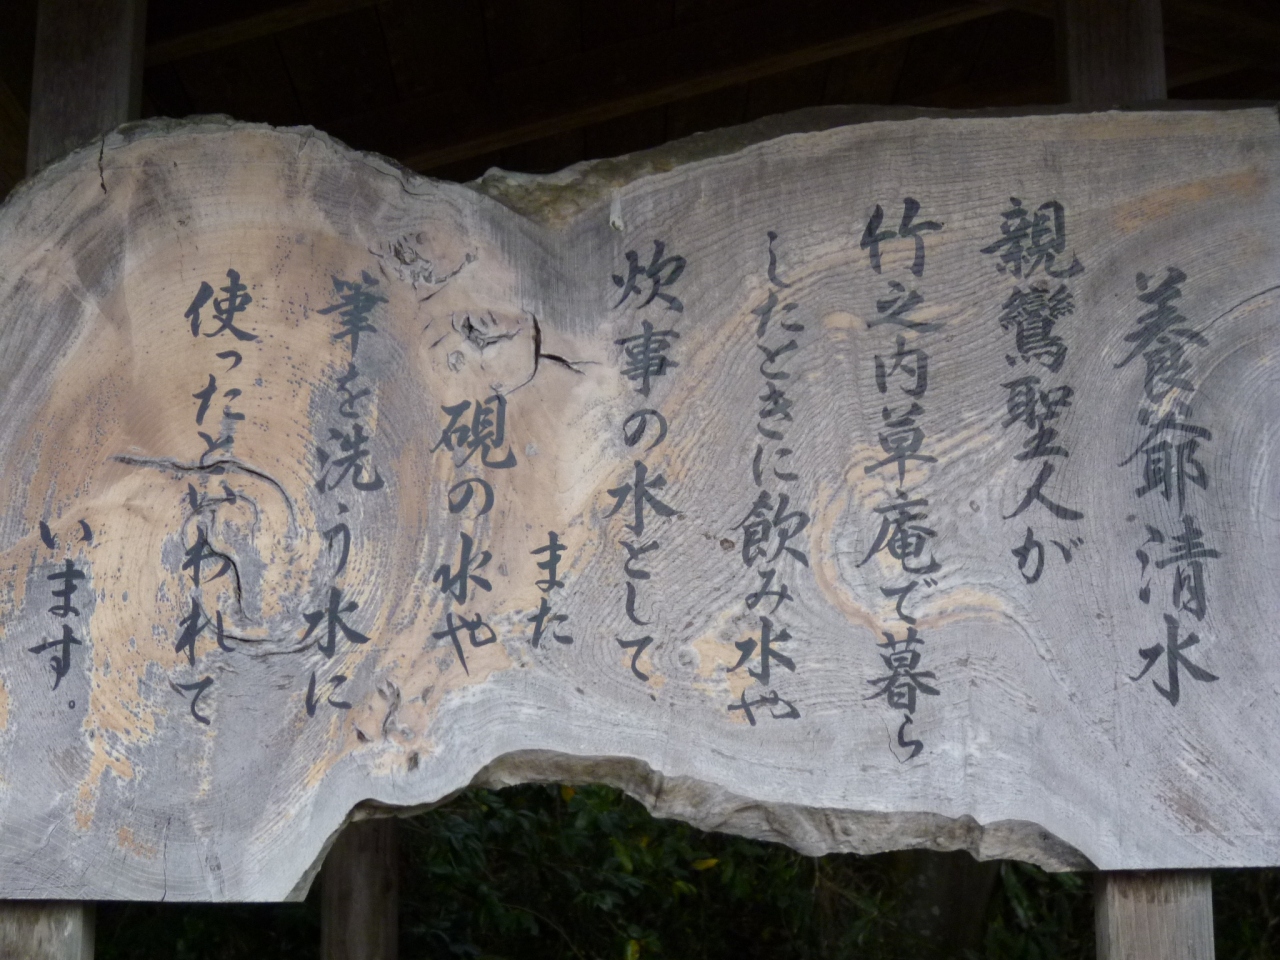 養爺清水
親鸞聖人が
竹之内草庵で暮ら
したときに飲み水や
炊事の水として、
また
硯の水や
筆を洗う水に
使ったといわれて
います。